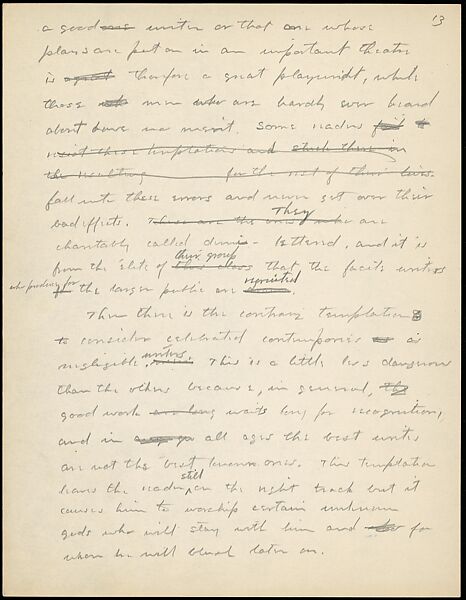 13
a good writer or that one whose
plays are put on in an important theatre
is a great therefore a great playwright, while
those men who are hardly ever heard
about have no merit. Some readers fail to
resist these temptations and stick there in
the resulting for the rest of their lives.
fall into these errors and never get over their
bad effects. These are the ones who They are
charitably called demi-lettered, and it is
from the élite of this class their group that the facile writers
who produce for the larger public are recruited.
Then there is the contrary temptation
to consider celebrated contemporaries as
negligible writers. This is a little less dangerous
than the others because, in general, the
good work are long waits long for recognition,
and in all ages the best writers
are not the best known ones. This temptation
leaves the reader still on the right track but it
causes him to worship certain unknown
gods who will stay with him and for
whom he will blush later on.